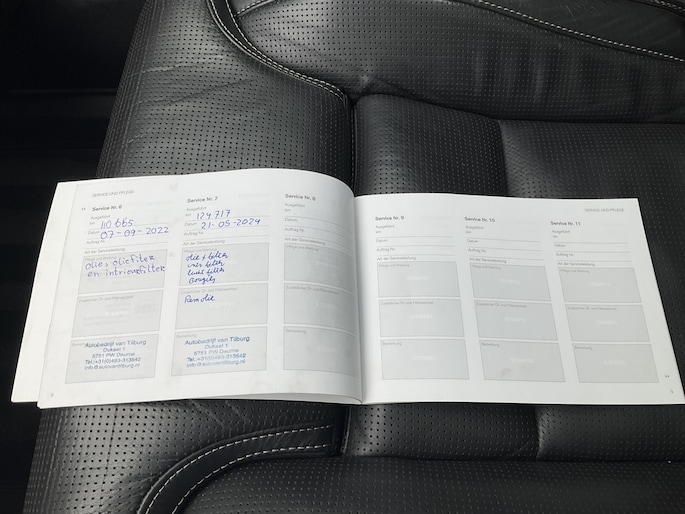 SERVICE UND PFLEGE
Service Nr. 6
Ausgeführt
km 110 665
Datum 07-09-2022
Auftrag Nr.
Art der Serviceleistung
olie, oliefilter
en intrieurfilter
Autobedrijf van Tilburg
5751 PW Deurne
Tel.:+31(0)493-313642
info@autovantilburg.nl
Service Nr. 7
Ausgeführt
km 124 717
Datum 21-05-2024
Auftrag Nr.
Art der Serviceleistung
olie + filter
inter filter
lucht filter
Bougies
Remolie
Bemerkung
Autobedrijf van Tilburg
5751 PW Deurne
Tel.:+31(0)493-313642
info@autovantilburg.nl
Service Nr. 8
Ausgeführt
km
Datum
Auftrag Nr.
Art der Serviceleistung
Bemerkung
Service Nr. 9
Ausgeführt
km
Datum
Auftrag Nr.
Art der Serviceleistung
Bemerkung
Service Nr. 10
Ausgeführt
km
Datum
Auftrag Nr.
Art der Serviceleistung
Bemerkung
SERVICE UND PFLEGE
Service Nr. 11
Ausgeführt
km
Datum
Auftrag Nr.
Art der Serviceleistung
Bemerkung